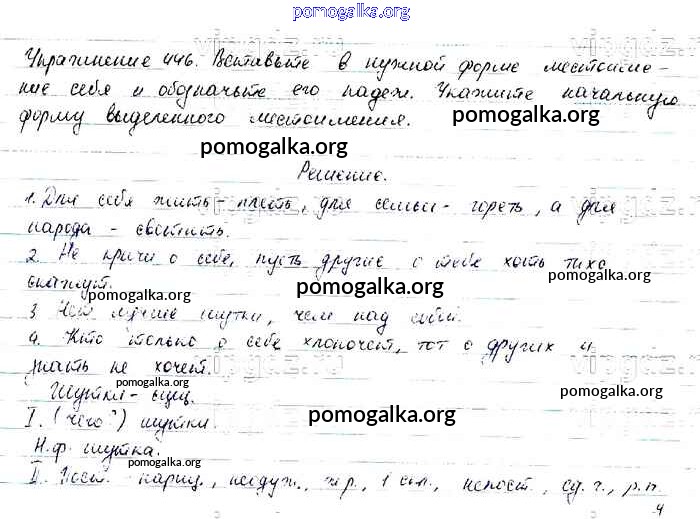 pomogalka.org
Упражнение 446. Вставьте в нужной форме местоиме-
ние себя и обозначьте его падеж. Укажите начальную
форму выделенного местоимения.
pomogalka.org
pomogalka.org
Решение.
1. Для себя жить - тлеть, для семьи - гореть, а для
народа - светить.
2. Не кричи о себе, пусть другие о тебе хоть тихо
скажут.
pomogalka.org
pomogalka.org
pomogalka.org
3. Нет лучше шутки, чем над собой.
4. Кто только о себе хлопочет, тот о других и
знать не хочет.
pomogalka.org
pomogalka.org
Шутки - сущ.
I. (чего?) шутки.
pomogalka.org
Н.ф. шутка.
pomogalka.org
II. Пост. нариц., неодуш., ж.р., 1 скл., непост., ед.ч., р.п.
4